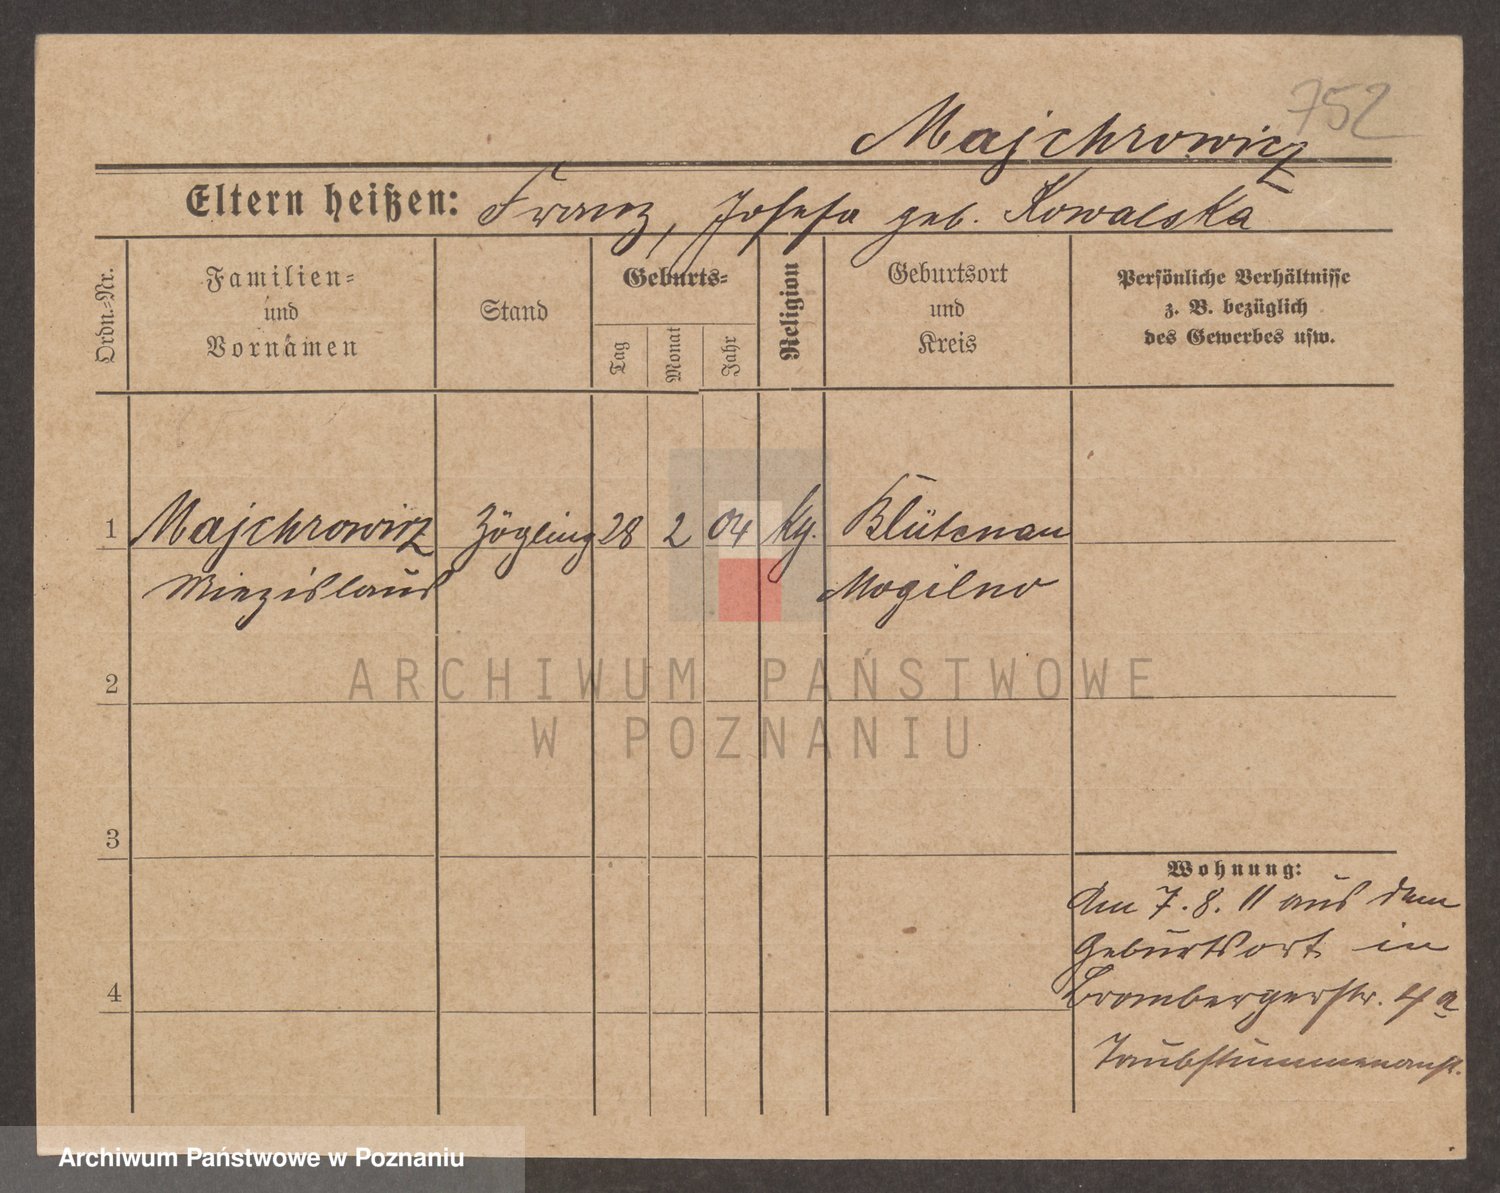 752
Majchrowicz
Eltern heißen: Franz, Josefa geb. Kowalska
Ordn.-Nr.
Familien-
und
Vornamen
Stand
Geburts-
Tag
Monat
Jahr
Religion
Geburtsort
und
Kreis
Persönliche Verhältnisse
z. B. bezüglich
des Gewerbes usw.
1 Majchrowicz Zögling 28 2 04 Blütenau
Miezislaus Mogilno
2
3
4
Wohnung:
Am 7. 8. 11 aus dem
Geburtsort in
Brombergerstr. 4a
Taubstummenanst.
ARCHIWUM PAŃSTWOWE
W POZNANIU
Archiwum Państwowe w Poznaniu